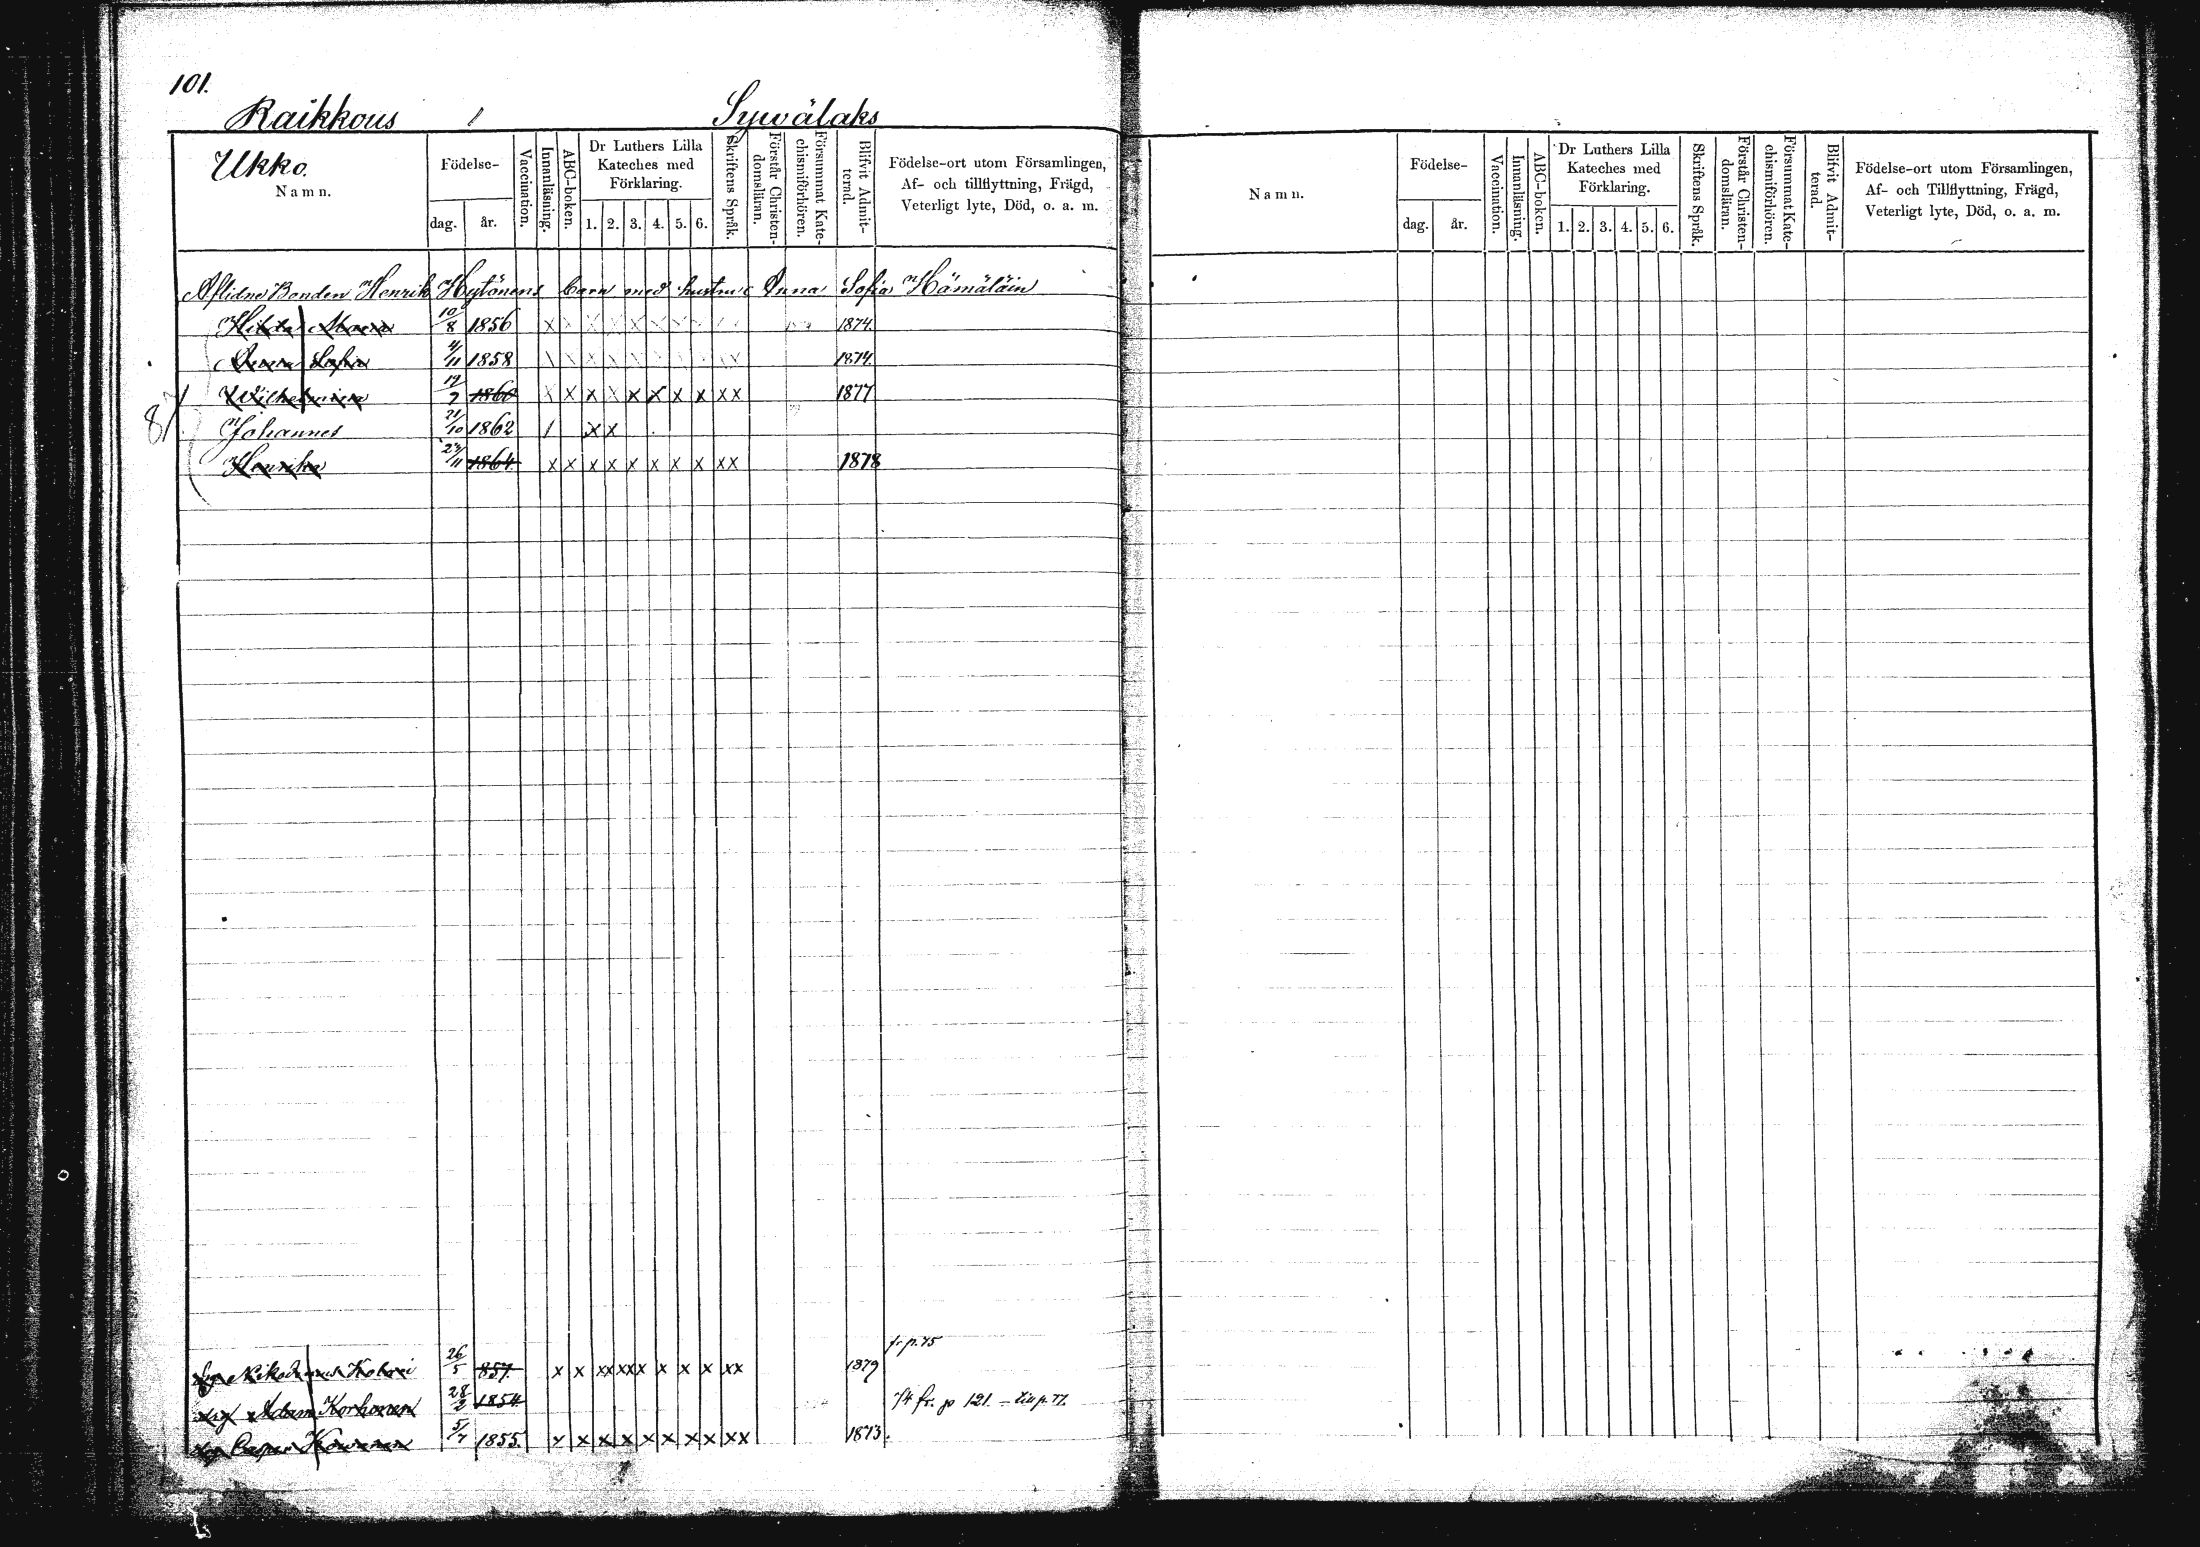 101.
Raikkous 1 Sywälaks
Ukko.
Namn. Födelse- dag. år. Vaccination. Innanläsning. ABC-boken. Dr Luthers Lilla Kateches med Förklaring. 1. 2. 3. 4. 5. 6. Skriftens Språk. Förstår Christen-domsläran. Försummat Kate-chismiförhören. Blifvit Admit-terad. Födelse-ort utom Församlingen, Af- och tillflyttning, Frägd, Veterligt lyte, Död, o. a. m.
Aflidne Bonden Henrik Hytönens barn med hustru Anna Sofia Hämäläin
Hilda Maria 10/8 1856 x x x x x x x x 1874.
Anna Sofia 4/11 1858 \ x x x x x x x x x 1874.
Wilhelmina 1860 x x x x x x x x x x 1877
87
Johannes 21/10 1862 / x x
Henrika 1864 x x x x x x x x x x 1878
fr p. 75
Nikodemus 26/5 857. x x xx xxx x x x xx 1879
Adam Korhonen 28/2 1854 fr. p 121. – till p. 77.
Casper 5/7 1855. x x x x x x x x xx 1873.
Namn. Födelse- dag. år. Vaccination. Innanläsning. ABC-boken. Dr Luthers Lilla Kateches med Förklaring. 1. 2. 3. 4. 5. 6. Skriftens Språk. Förstår Christen-domsläran. Försummat Kate-chismiförhören. Blifvit Admit-terad. Födelse-ort utom Församlingen, Af- och Tillflyttning, Frägd, Veterligt lyte, Död, o. a. m.